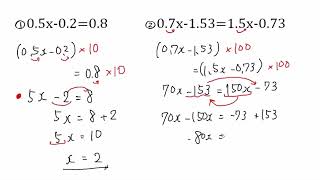 ①0.5x-0.2=0.8
(0.5x-0.2)×10
=0.8×10
5x-2=8
5x=8+2
5x=10
x=2
②0.7x-1.53=1.5x-0.73
(0.7x-1.53)×100
=(1.5x-0.73)×100
70x-153=150x-73
70x-150x=-73+153
-80x=